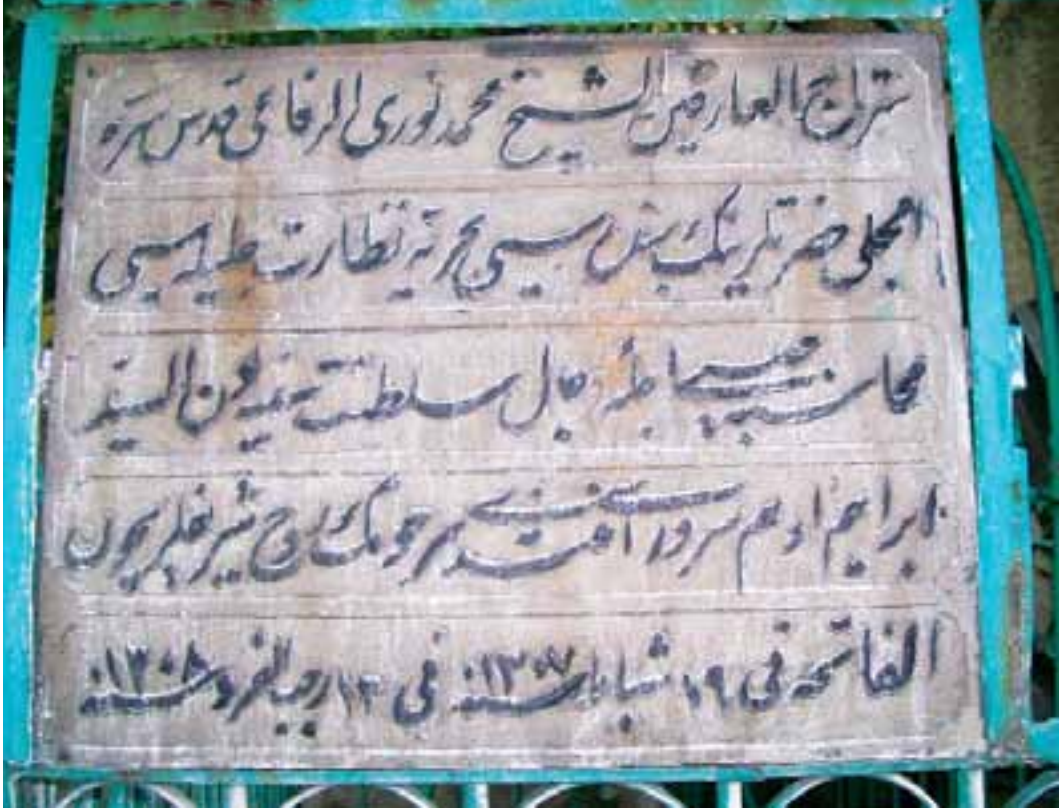 سراج العارفین الشیخ محمد نوری الرفاعی قدس سره
حضرتلرینك بحریه نظارت جلیله سی
محاسبه رجال سلطنت سنیه دن السید
ابراهیم ادهم سرور افندی مرحومك روح شریفلریچون
الفاتحه فی ١٩ شباط سنه ١٣٠٧ فی ١٢ رجب الفرد سنه ١٣٠٨